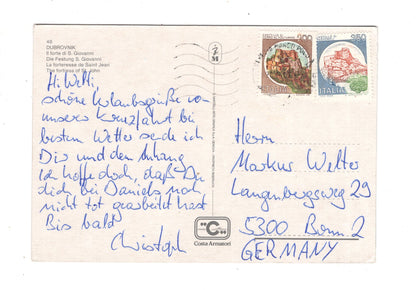 49
DUBROVNIK
Il forte di S. Giovanni
Die Festung S. Giovanni
La forteresse de Saint Jean
The fortress of St. John
Hi Welti,
schöne Urlaubsgrüße von
unserer Kreuzfahrt bei
bestem Wetter sende ich
Dir und dem Anhang
Ich hoffe doch, daß Du
dich bei Daniels noch
nicht tot gearbeitet hast
Bis bald
Christoph
200
ITALIA
350
ITALIA
Herrn
Markus Welter
Langenbergsweg 29
5300 Bonn 2
GERMANY
C
Costa Armatori